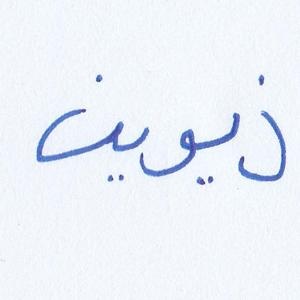 ذيوين